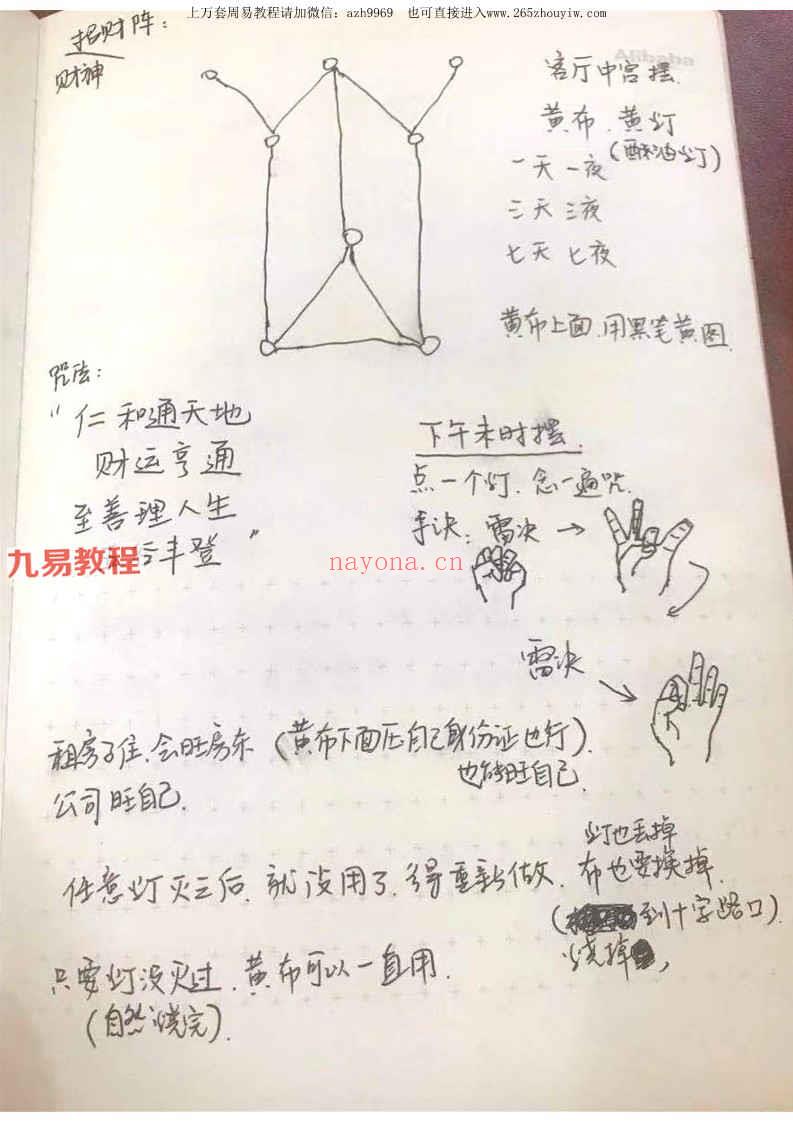 上万套周易教程请加微信：azh9969 也可直接进入www.265zhouyiw.com
招财阵：
财神
Alibaba
客厅中宫摆.
黄布.黄灯
(酥油灯)
一天一夜
三天三夜
七天七夜
黄布上面.用黑笔画图.
咒法：
“仁和通天地
财运亨通
至善理人生
丰登”
九易教程
nayona.cn
下午未时摆.
点一个灯.念一遍咒.
手决：雷决→
雷决
租房子住.会旺房东(黄布下面压自己身份证也行).
也能旺自己.
公司旺自己.
任意灯灭之后.就没用了.得重新做.布也要换掉.
灯也丢掉
(到十字路口).
烧掉,
只要灯没灭过.黄布可以一直用.
(自然烧完).